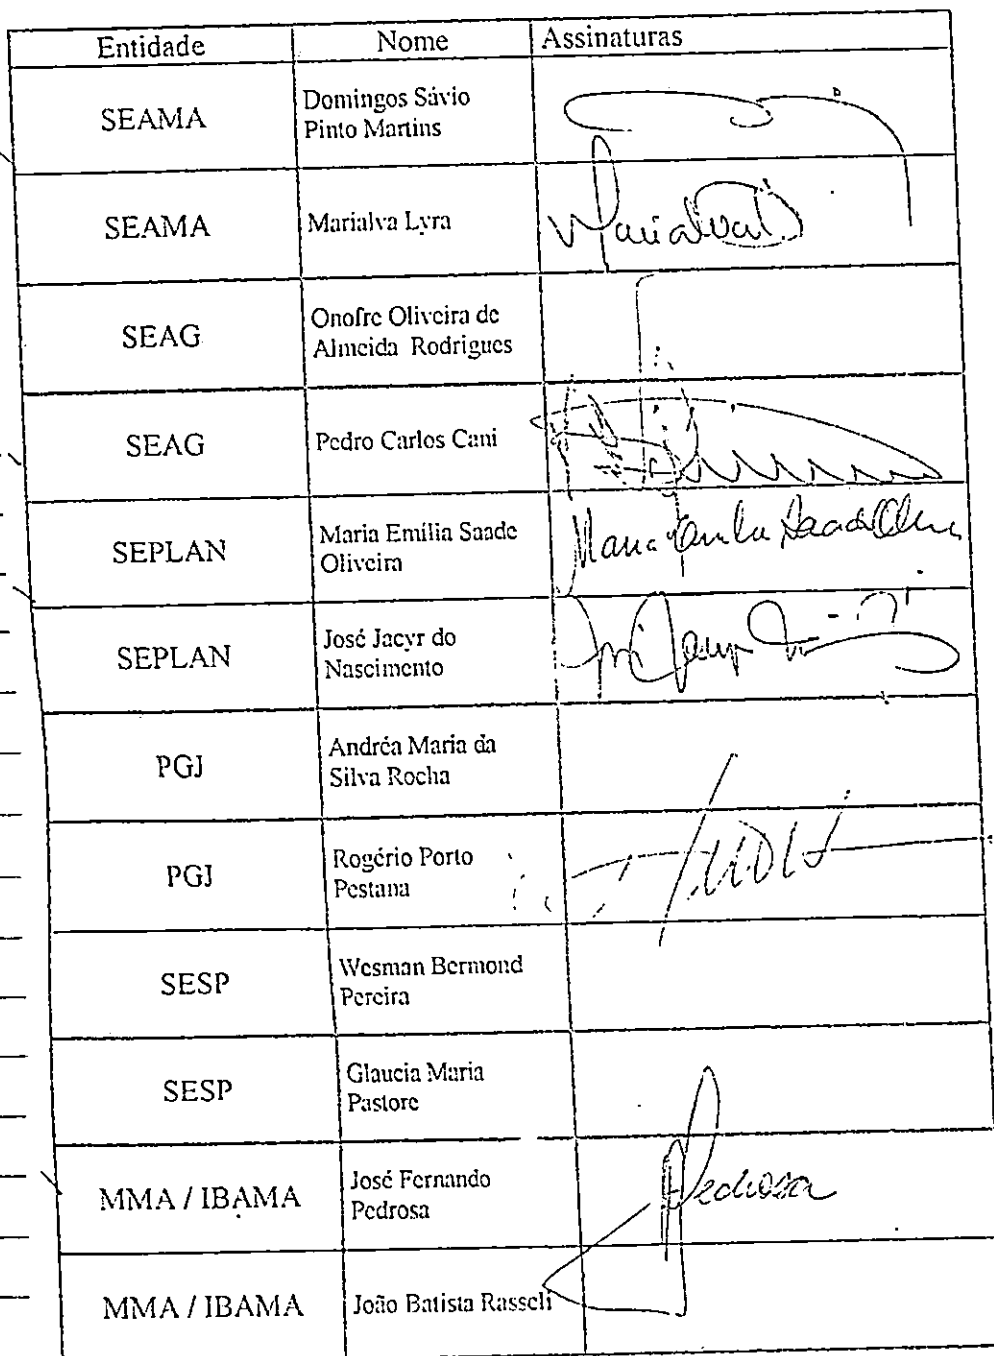 Entidade Nome Assinaturas
SEAMA
Domingos Sávio
Pinto Martins
SEAMA
Marialva Lyra
Marialva
SEAG
Onofre Oliveira de
Almeida Rodrigues
SEAG
Pedro Carlos Cani
SEPLAN
Maria Emília Saade
Oliveira
Maria Emília Saade Oliveira
SEPLAN
José Jacyr do
Nascimento
José Jacyr
PGJ
Andréa Maria da
Silva Rocha
PGJ
Rogério Porto
Pestana
SESP
Wesman Bermond
Pereira
SESP
Glaucia Maria
Pastore
MMA / IBAMA
José Fernando
Pedrosa
Pedrosa
MMA / IBAMA
João Batista Rasseli